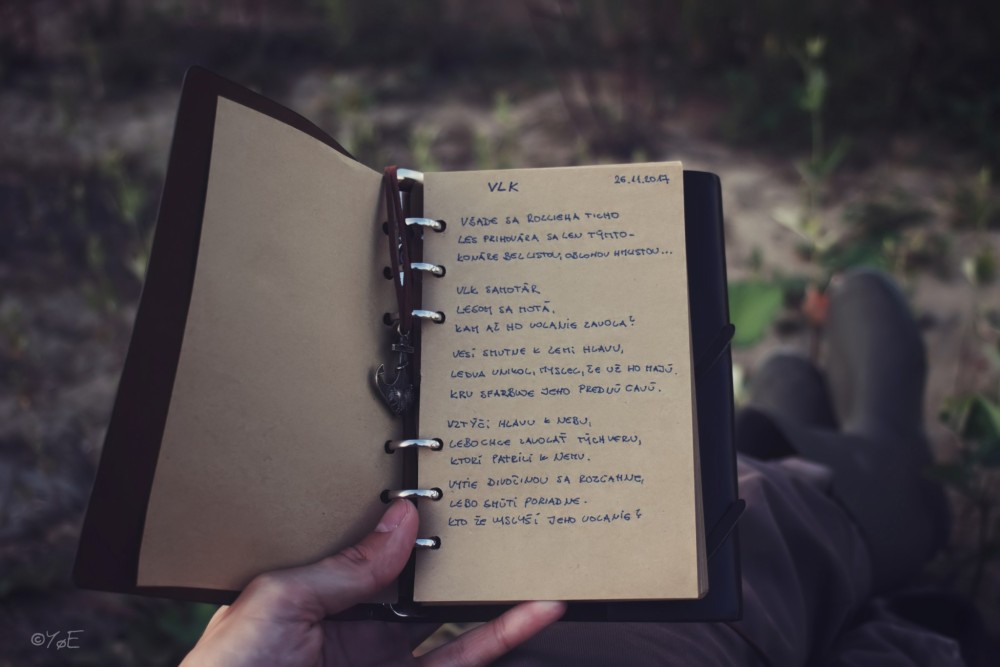 VLK
26.11.2017
VŠADE SA ROZLIEHA TICHO
LES PRIHOVÁRA SA LEN TÝMTO-
KONÁRE BEZ LISTOV, OBLOHOU HMLISTOU...
VLK SAMOTÁR
LESOM SA MOTÁ,
KAM AŽ HO VOLANIE ZAVOLÁ?
VESÍ SMUTNE K ZEMI HLAVU,
LEDVA UNIKOL, MYSLEL, ŽE UŽ HO MAJÚ.
KRV SFARBUJE JEHO PREDNÚ LAVÚ.
VZTÝČI HLAVU K NEBU,
LEBO CHCE ZAVOLAŤ TÝCH VERU,
KTORÍ PATRILI K NEMU.
VYTIE DIVOČINOU SA ROZĽAHNE,
LEBO SMÚTI PORIADNE.
KTO ŽE VYSLYŠÍ JEHO VOLANIE?
©YøE